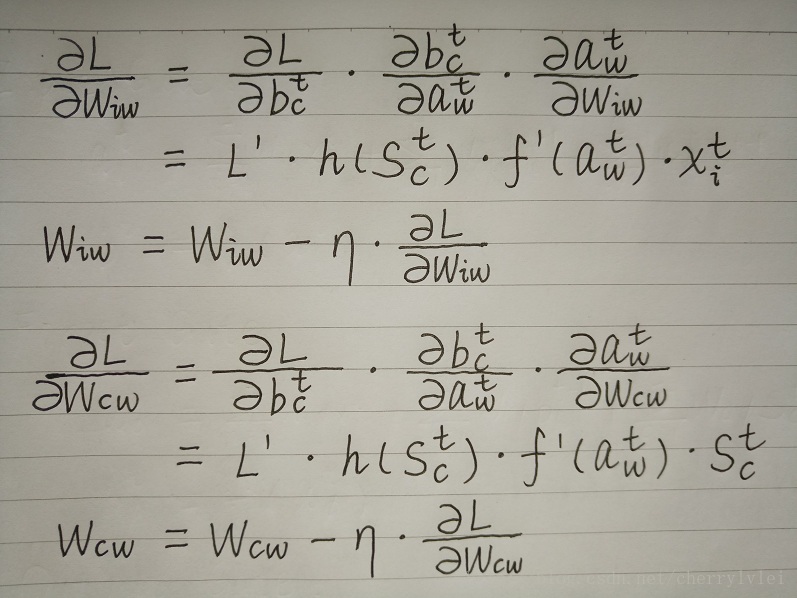 ∂L/∂Wiw = ∂L/∂b_c^t · ∂b_c^t/∂a_w^t · ∂a_w^t/∂Wiw
= L' · h(S_c^t) · f'(a_w^t) · x_i^t
Wiw = Wiw − η · ∂L/∂Wiw
∂L/∂Wcw = ∂L/∂b_c^t · ∂b_c^t/∂a_w^t · ∂a_w^t/∂Wcw
= L' · h(S_c^t) · f'(a_w^t) · S_c^t
Wcw = Wcw − η · ∂L/∂Wcw
csdn.net/cherrylvlei